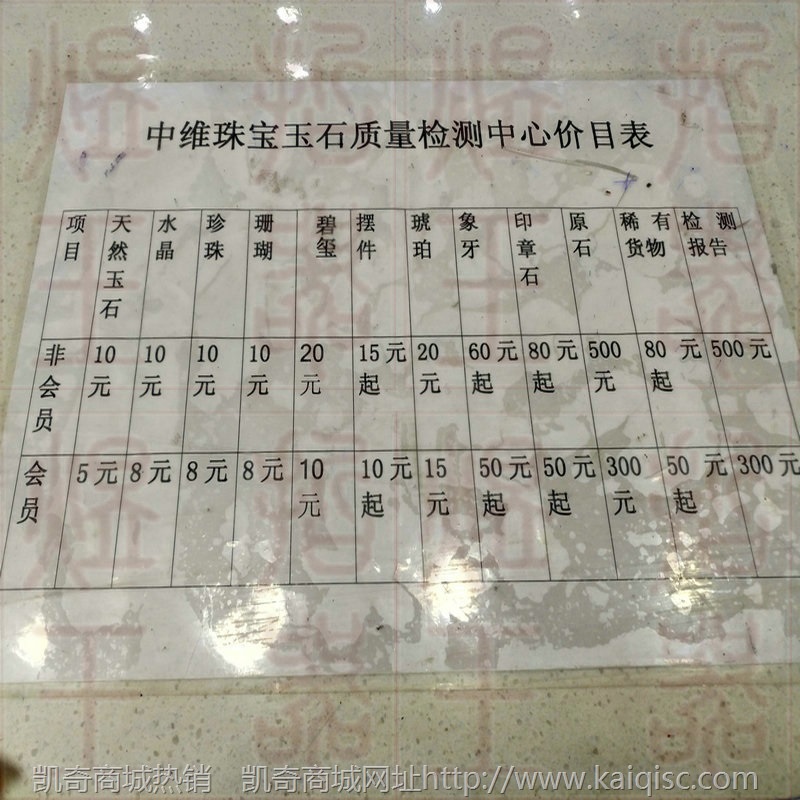 中维珠宝玉石质量检测中心价目表
项目 天然玉石 水晶 珍珠 珊瑚 碧玺 摆件 琥珀 象牙 印章石 原石 稀有货物 检测报告
非会员 10元 10元 10元 10元 20元 15元起 20元 60元起 80元起 500元 80元起 500元
会员 5元 8元 8元 8元 10元 10元起 15元 50元起 50元起 300元 50元起 300元
凯奇商城热销 凯奇商城网址http://www.kaiqisc.com